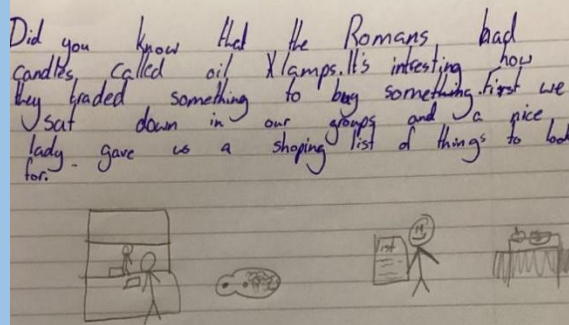 Did you know that the Romans had
candles, called oil lamps. It's intresting how
they traded something to buy something. First we
sat down in our groups and a nice
lady gave us a shoping list of things to look
for.
list